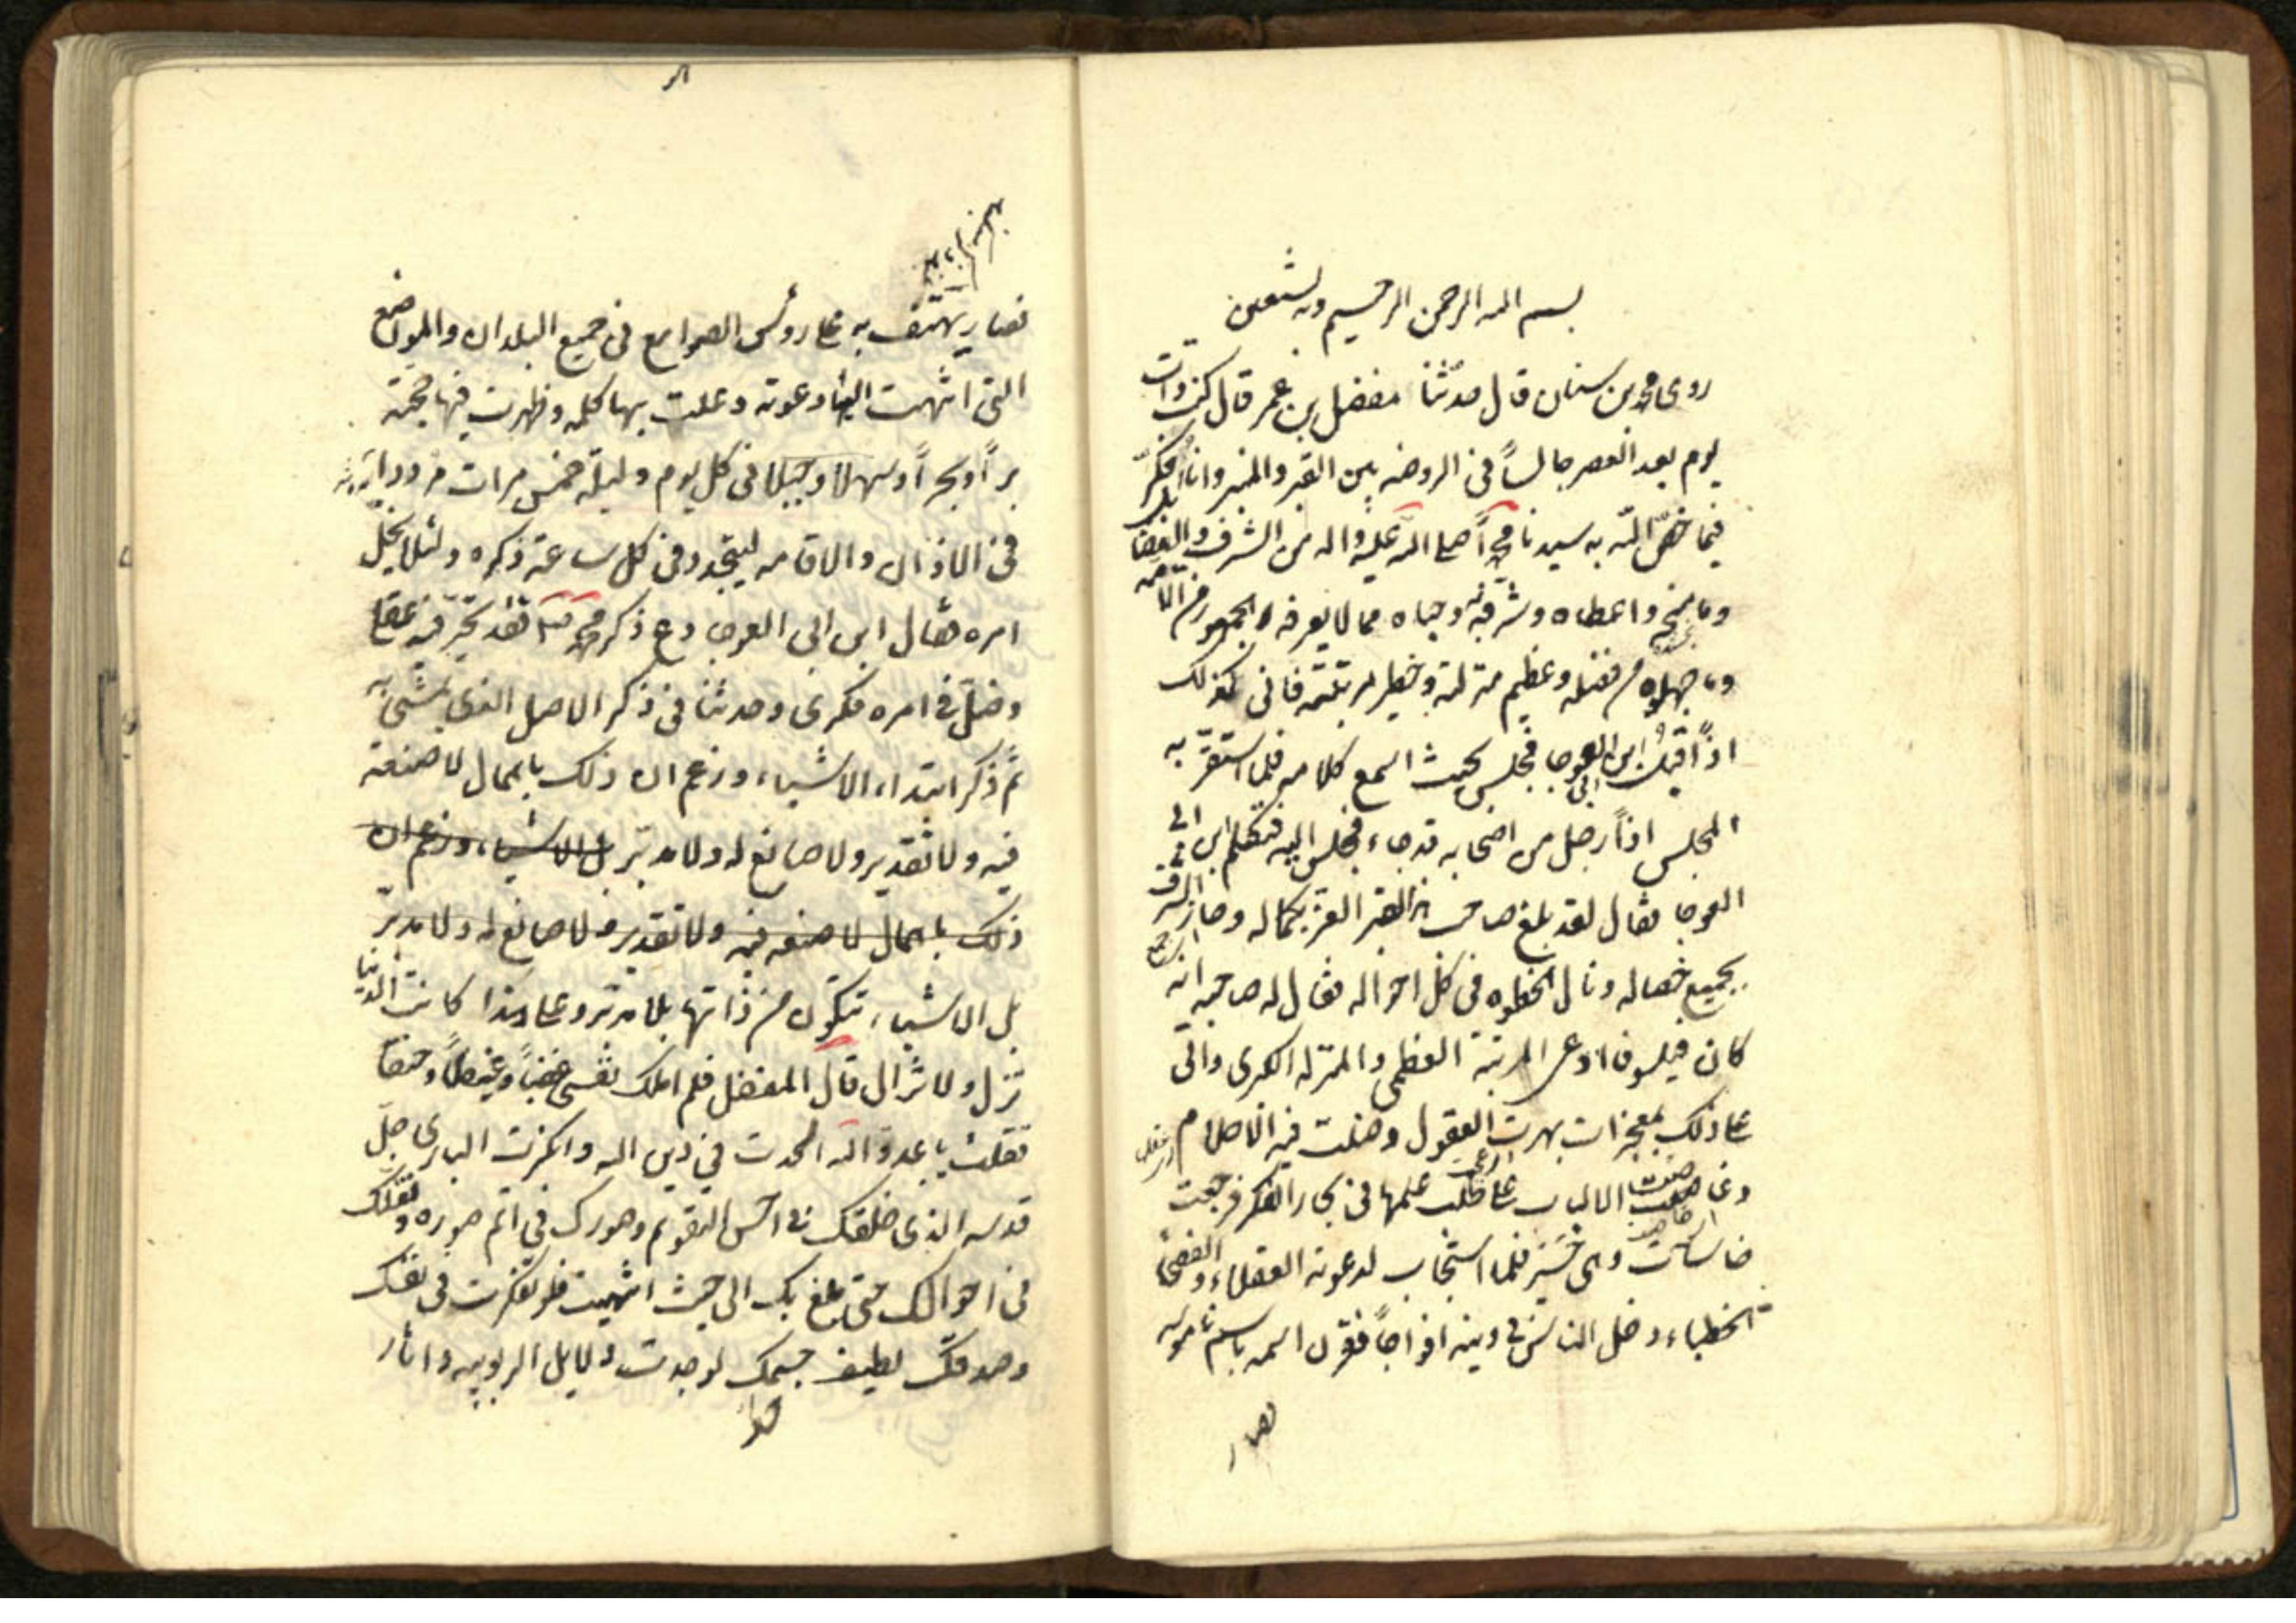 بسم الله الرحمن الرحيم وبه نستعين
روى محمد بن سنان قال حدثنا مفضل بن عمر قال كنت ذات
يوم بعد العصر جالساً في الروضه بين القبر والمنبر وانا مفكر
فيما خصّ اللّه به سيدنا محمداً صلى الله عليه واله من الشرف والفضائل
وما منحه واعطاه وشرفه به وحباه مما لا يعرفه الجمهور من الامه
وما جهلوه من فضله وعظيم منزلته وخطير مرتبته فاني لكذلك
اذ اقبل ابن ابي العوجا فجلس بحيث اسمع كلامه فلما استقرّ به
المجلس اذاً رجل من اصحابه قد جاء فجلس اليه فتكلم ابن ابي
العوجا فقال لقد بلغ صاحب هذا القبر العز بكماله وحاز الشرف
بجميع خصاله ونال الحظوه في كل احواله فقال له صاحبه انه
كان فيلسوفا ادعى المرتبة العظمى والمنزله الكبرى واتى
على ذلك بمعجزات بهرت العقول وضلت فيه الاحلام
وغاصت الالباب على طلب علمها في بحار الفكر فرجعت
خاسئات وهى حُسَّر فلما استجاب لدعوته العقلاء والفصحاء
والخطباء دخل الناس في دينه افواجاً فقرن اسمه باسم ناموسه
فصار
فصار يهتف به على رؤس الصوامع في جميع البلدان والمواضع
التى انتهت اليها دعوته وعلت بها كلمه وظهرت فيها حجته
براً وبحراً وسهلا وجبلا في كل يوم وليلة خمس مرات مرددا
في الاذان والاقامه ليتجدد في كل ساعة ذكره ولئلا يخمل
امره فقال ابن ابى العوجا دع ذكر محمد ص فقد تحيّر فيه عقلى
وضلّ في امره فكرى وحدثنا في ذكر الاصل الذى يمشى به
ثم ذكر ابتداء الاشياء وزعم ان ذلك باهمال لا صنعة
فيه ولا تقدير ولا صانع له ولا مدبّر بل الاشياء وزعم ان
ذلك باهمال لا صنعه فيه ولا تقدير ولا صانع له ولا مدبّر
بل الاشياء تتكوّن من ذاتها بلا مدبر وعلى هذا كانت الدنيا
تزل ولا تزال قال المفضل فلم املك نفسى غضباً وغيظاً وحنقاً
فقلت يا عدوّ الله الحدت في دين الله وانكرت البارى جلّ
قدسه الذى خلقك في احسن التقويم وصورك في اتم صوره ونقلك
في احوالك حتى بلغ بك الى حيث انتهيت فلو تفكرت في نفسك
وصدقك لطيف جسمك لوجدت دلايل الربوبيه واثار